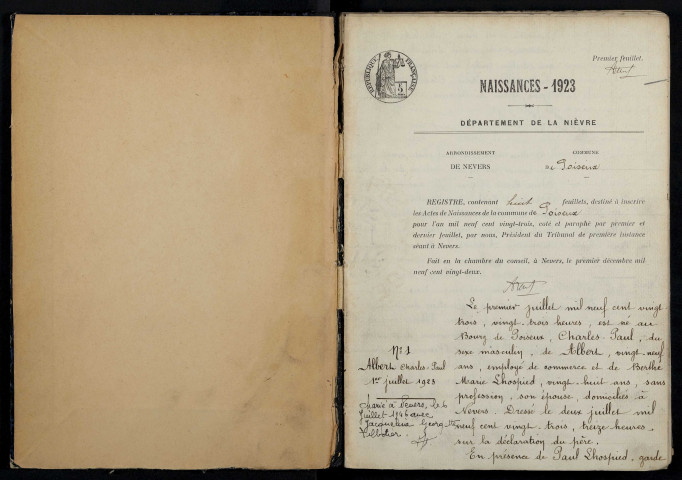 RÉPUBLIQUE FRANÇAISE
Premier feuillet.
NAISSANCES - 1923
DÉPARTEMENT DE LA NIÈVRE
ARRONDISSEMENT
DE NEVERS
COMMUNE
de Poiseux
REGISTRE, contenant huit feuillets, destiné à inscrire
les Actes de Naissances de la commune de Poiseux
pour l'an mil neuf cent vingt-trois, coté et paraphé par premier et
dernier feuillet, par nous, Président du Tribunal de première instance
séant à Nevers.
Fait en la chambre du conseil, à Nevers, le premier décembre mil
neuf cent vingt-deux.
N° 1
Albert Charles-Paul
1er juillet 1923
Marié à Nevers, le 6
juillet 1946 avec
Jacqueline
Le premier juillet mil neuf cent vingt
trois, vingt trois heures, est né au
Bourg de Poiseux, Charles-Paul, du
sexe masculin, de Albert, vingt-neuf
ans, employé de commerce et de Berthe
Marie Lhospied, vingt-huit ans, sans
profession, son épouse, domiciliés à
Nevers. Dressé le deux juillet mil
neuf cent vingt-trois, treize heures,
sur la déclaration du père.
En présence de Paul Lhospied, garde